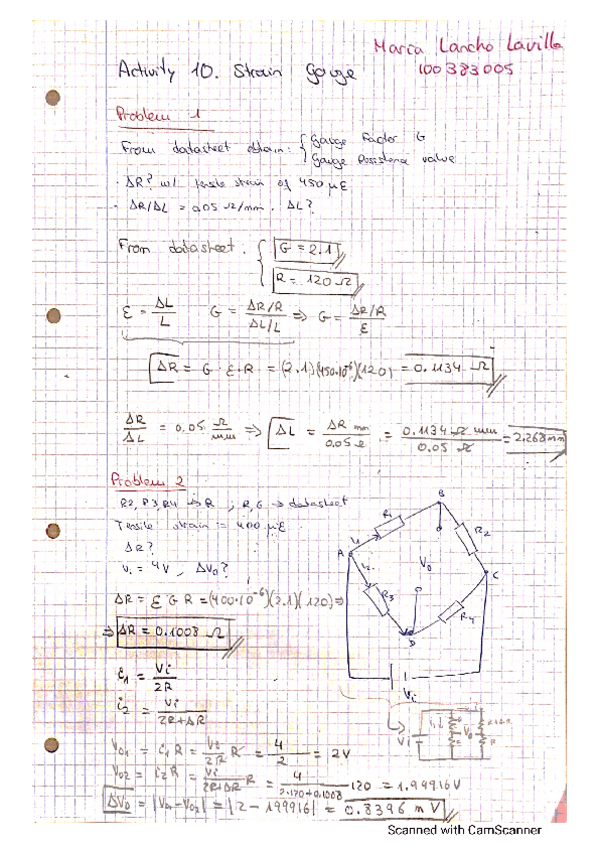 María Lancho Lavilla
100383005
Activity 10. Strain Gauge
Problem 1
From datasheet obtain: { Gauge Factor G
Gauge Resistance value
· ΔR? w/ tensile strain of 450 με
· ΔR/ΔL = 0.05 Ω/mm. ΔL?
From datasheet. { G = 2.1
R = 120 Ω
ε = ΔL/L G = (ΔR/R)/(ΔL/L) ⇒ G = (ΔR/R)/ε
ΔR = G · ε · R = (2.1)(450·10⁻⁶)(120) = 0.1134 Ω
ΔR/ΔL = 0.05 Ω/mm ⇒ ΔL = ΔR mm/0.05 Ω = 0.1134 Ω mm/0.05 Ω = 2.268 mm
Problem 2
R2, R3, R4 → R , R, G → datasheet
Tensile strain = 400 με
ΔR?
Vi = 4V , ΔV₀?
ΔR = ε G R = (400·10⁻⁶)(2.1)(120) ⇒
⇒ ΔR = 0.1008 Ω
i₁ = Vi/2R
i₂ = Vi/(2R+ΔR)
V₀₁ = i₁ R = Vi/2R R = 4/2 = 2V
V₀₂ = i₂ R = Vi/(2R+ΔR) R = 4/(2·120+0.1008) 120 = 1.99916V
ΔV₀ = |V₀₁-V₀₂| = |2 - 1.99916| = 0.8396 mV
B
R1
R2
A
i1
i2
V₀
C
R3
R4
D
Vi
Vi
V₀
R
Scanned with CamScanner